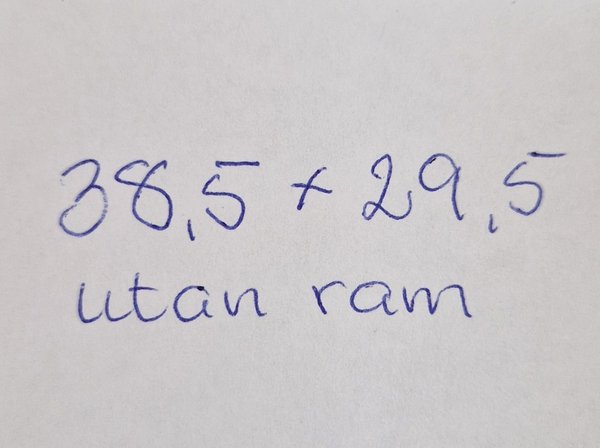 38,5 x 29,5
utan ram